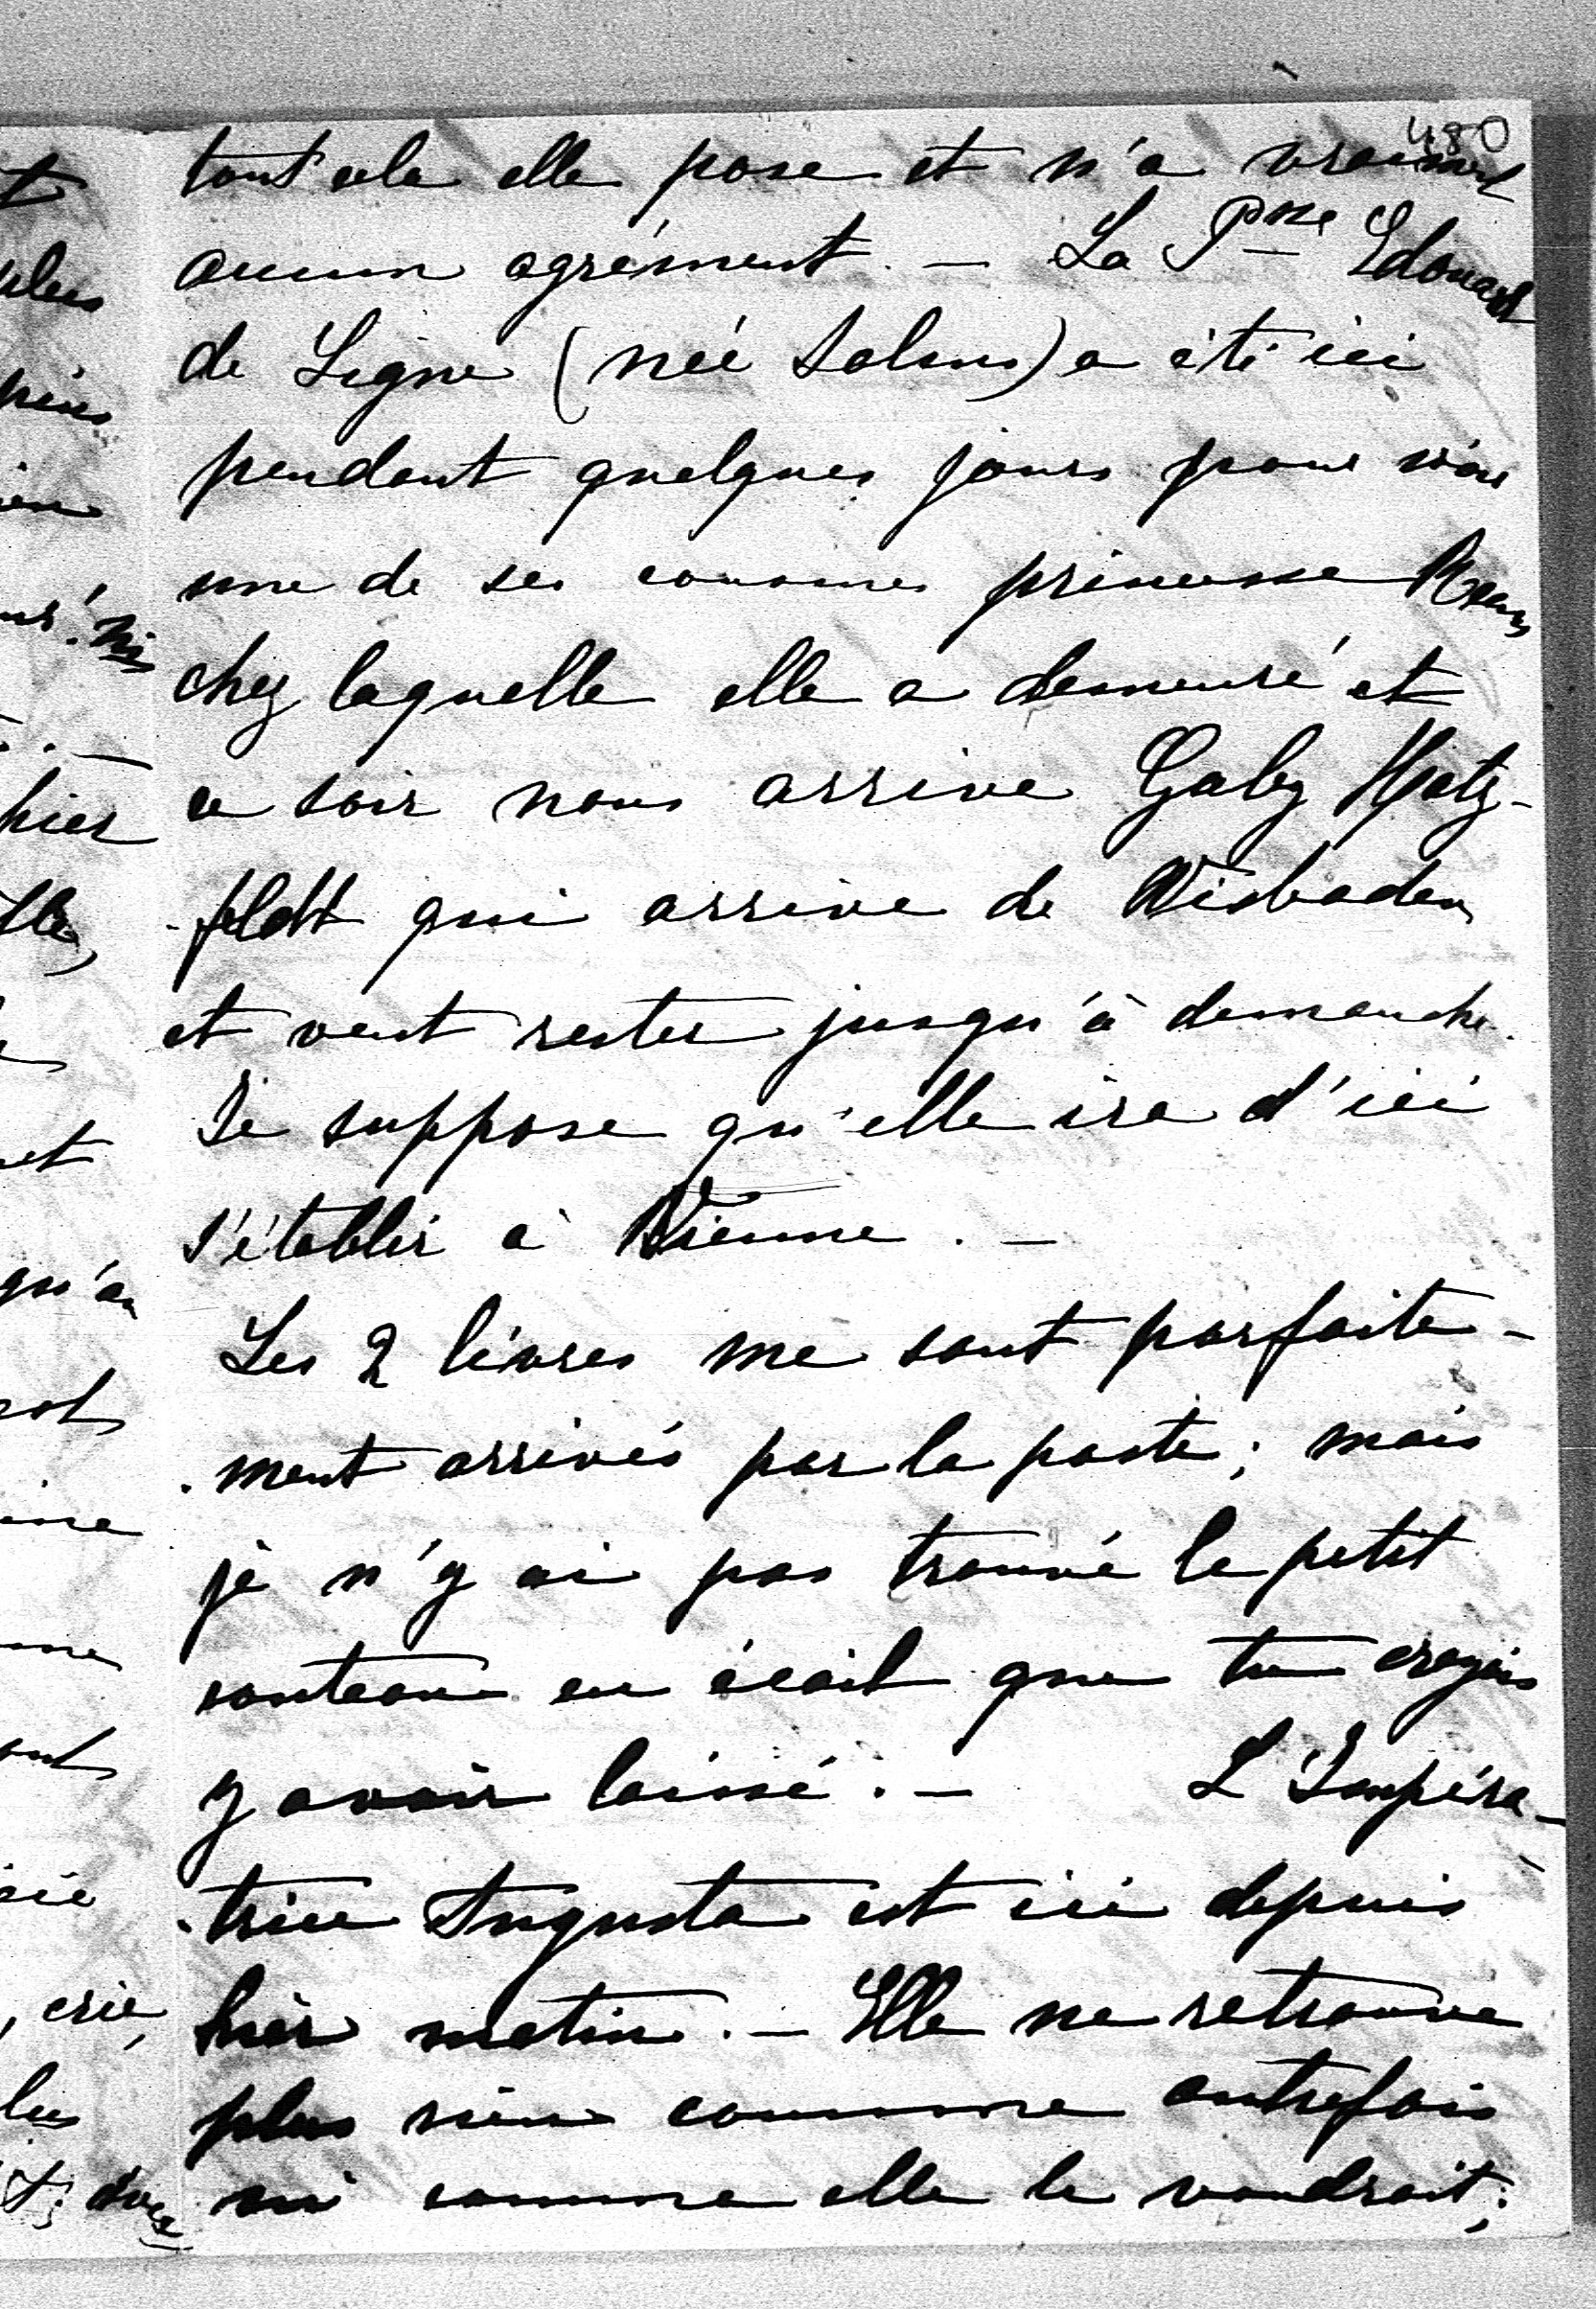 480
tout cela elle pose et n'a vraiment
aucun agrément. — La Psse Edouard
de Ligne (née Solms) a été ici
pendant quelques jours pour voir
une de ses cousines princesse Reuss
chez laquelle elle a demeuré et
ce soir nous arrive Gaby Hatz-
-feldt qui arrive de Wisbaden
et veut rester jusqu'à demanche.
Je suppose qu'elle ira d'ici
s'établir à Vienne. —
Les 2 livres me sont parfaite-
-ment arrivés par la poste; mais
je n'y ai pas trouvé le petit
couteau en écail que tu croyais
y avoir laissé. — L'Impéra-
-trice Augusta est ici depuis
hier matin. — Elle ne retrouve
plus rien comme autrefois
ni comme elle le voudrait;